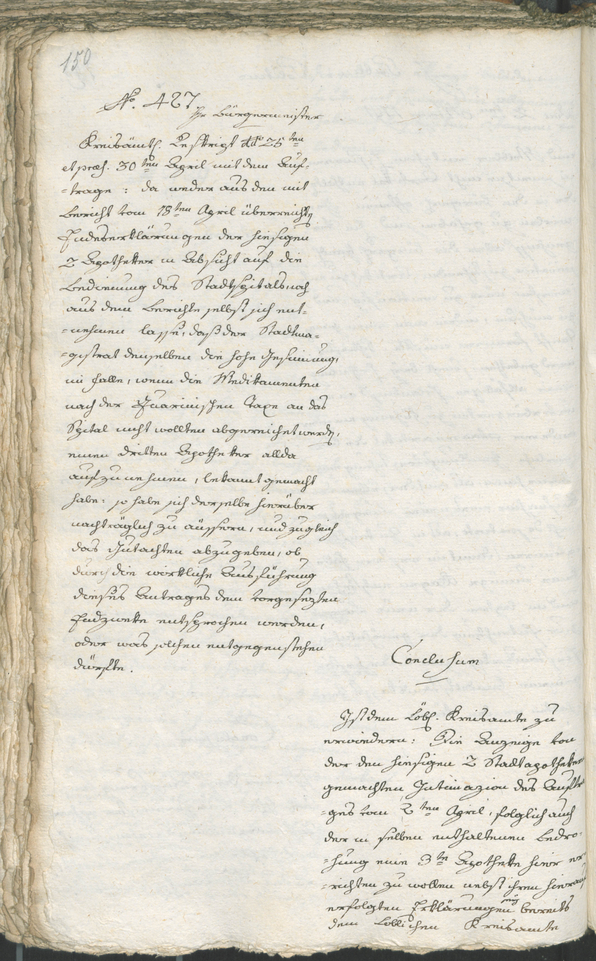 150
No. 427
Hr Bürgermeister
Kreisämtl. Reskript ddo 25ten
et præs. 30ten April mit dem Auf-
-trage: da weder aus den mit
Bericht vom 18ten April überreichten
Endeserklärungen der hiesigen
2 Apotheker in Absicht auf die
Bedienung des Stadtspitals noch
aus dem Berichte selbst sich ent-
-nehmen lasse, daß der Stadtma-
-gistrat denselben die hohe Gesinnung,
im Falle, wenn die Medikamenten
nach der Quarinischen Taxe an das
Spital nicht wollten abgereichet werden,
einen dritten Apotheker allda
aufzunehmen, bekannt gemacht
habe: so habe sich derselbe hierüber
nachträglich zu äussern, und zugleich
das Gutachten abzugeben, ob
durch die wirkliche Ausführung
dieses Antrages dem vorgesezten
Endzweke entsprochen werden,
oder was solchen entgegenstehen
dürfte.
Conclusum
Ist dem Löbl. Kreisamte zu
erwiedern: Die Anzeige von
der den hiesigen 2 Stadtapotheken
gemachten Intimazion des Auftra-
-ges vom 2ten April, folglich auch
der in selben enthaltenen Bedro-
-hung eine 3te Apotheke hier er-
-richten zu wollen nebst ihren hierauf
erfolgten Erklärungen bereits
dem Löblichen Kreisamte